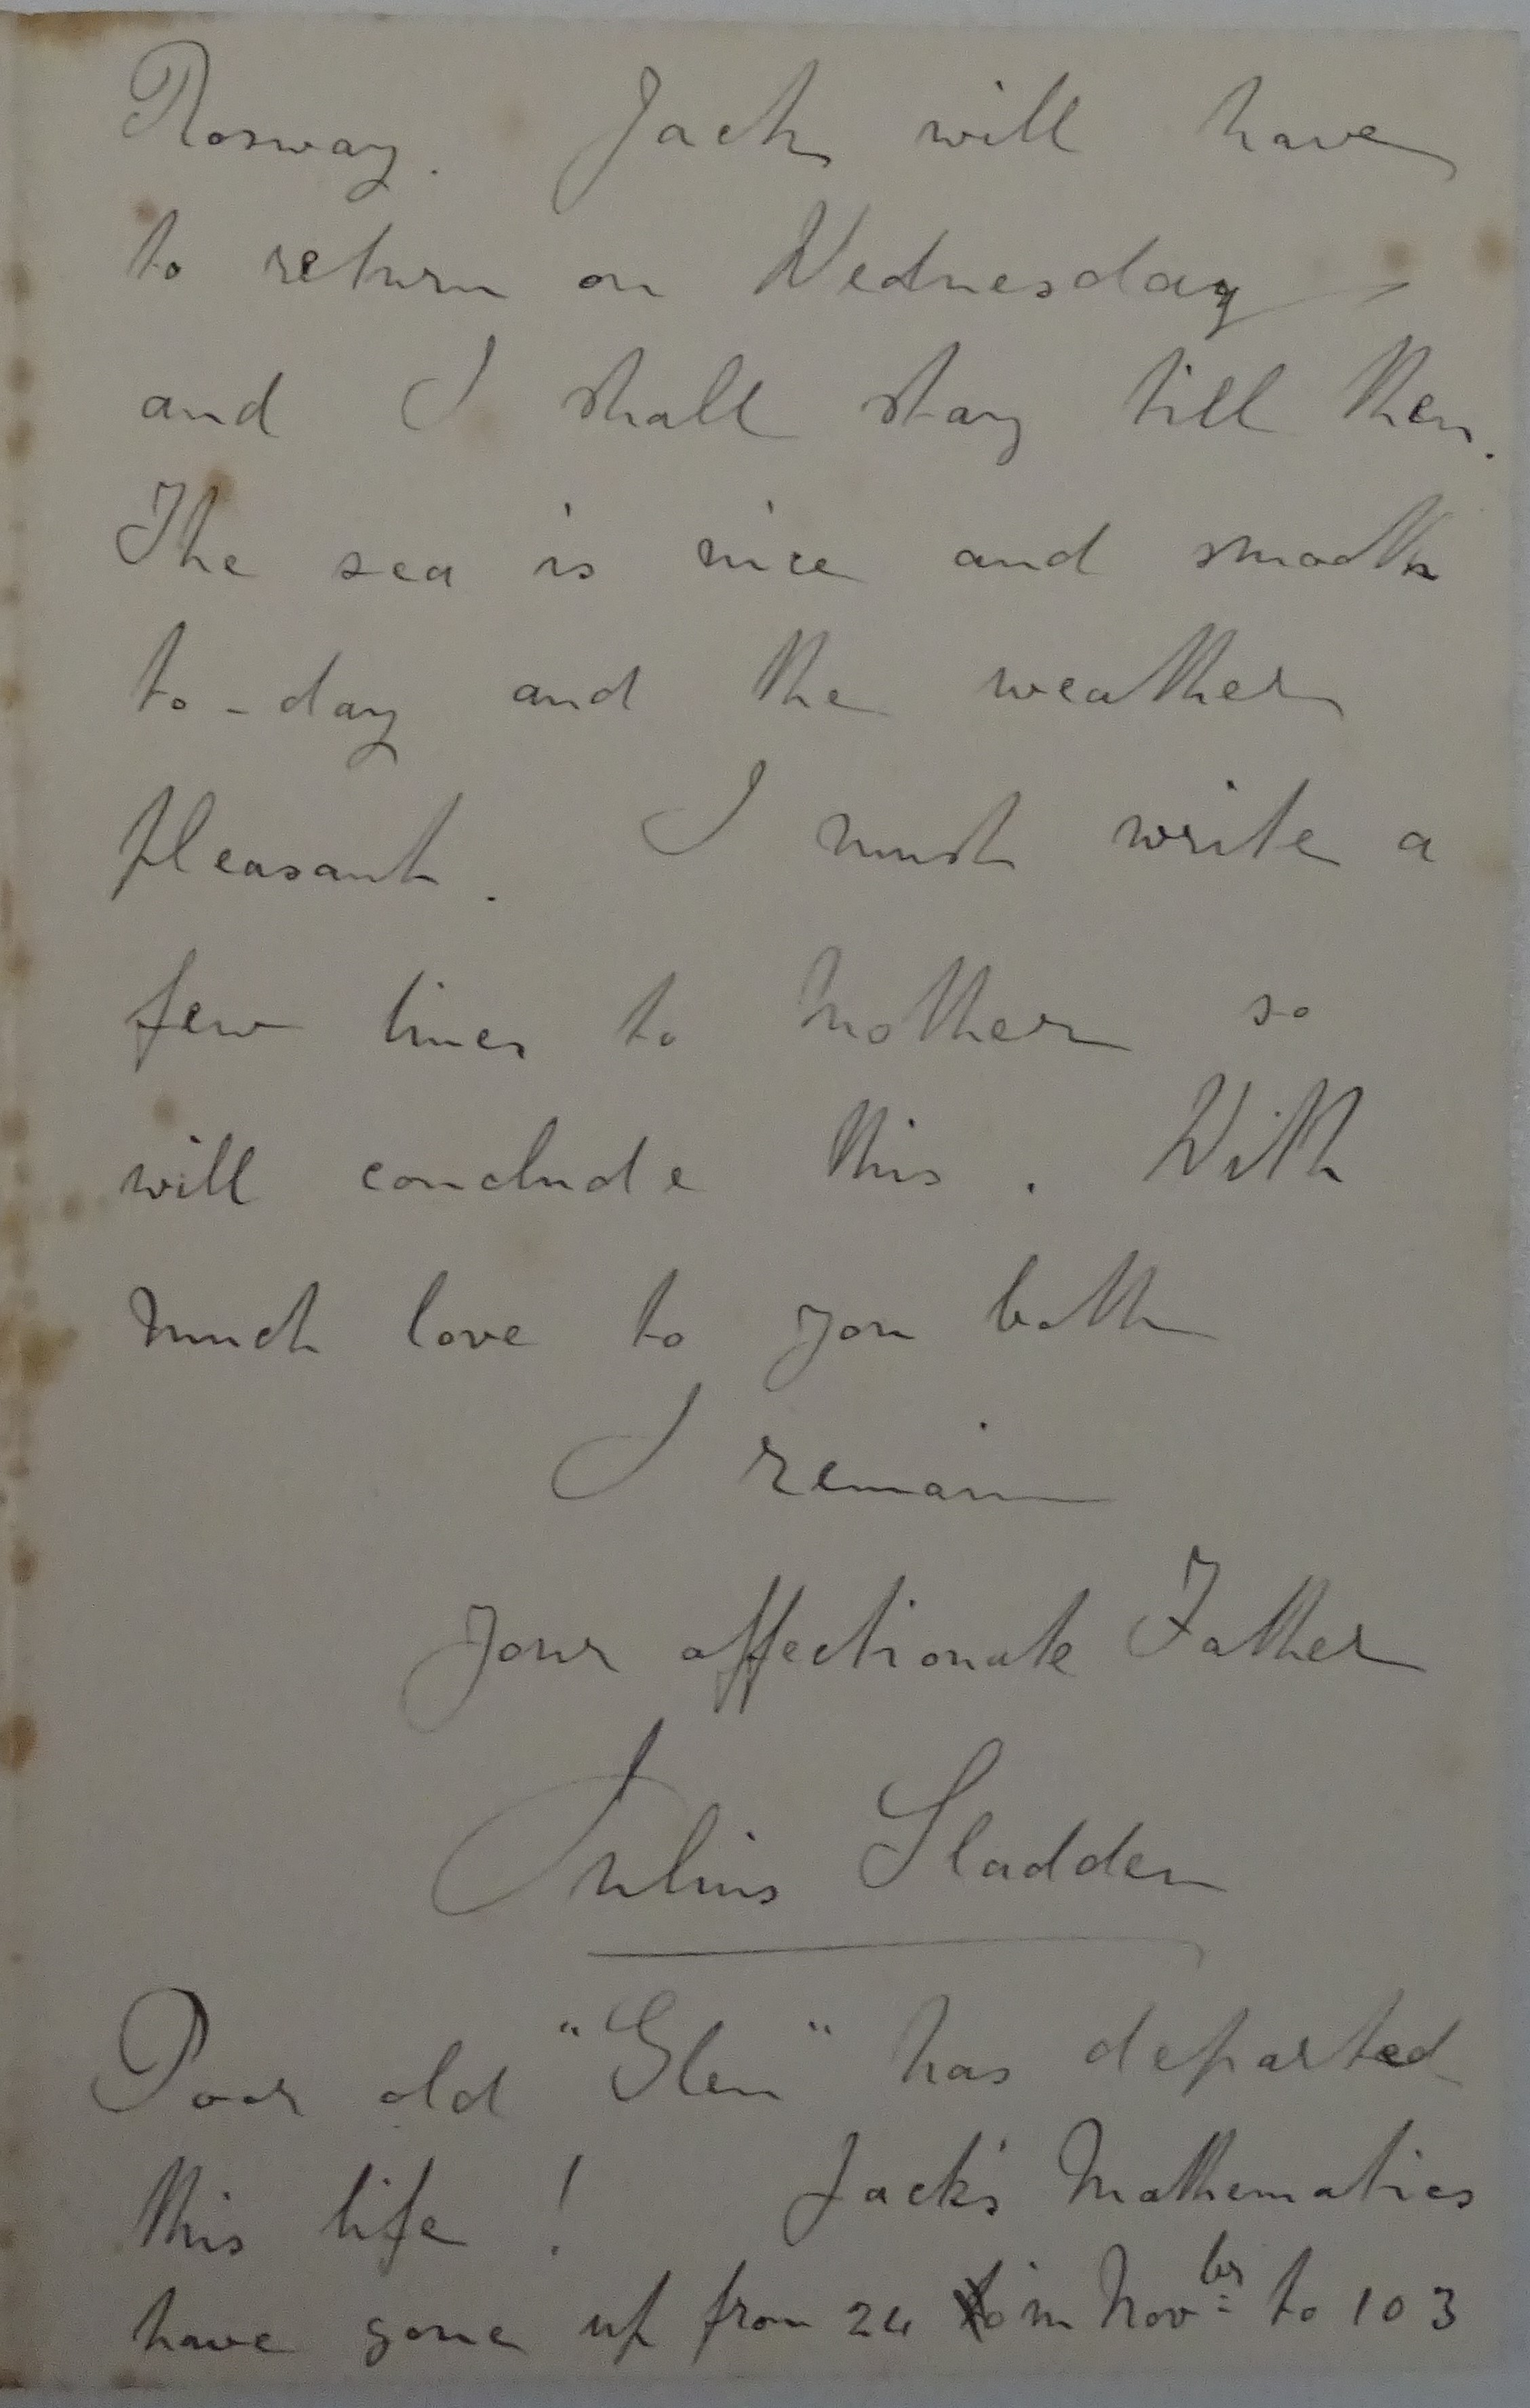 Norway. Jack will have
to return on Wednesday
and I shall stay till then.
The sea is nice and smooth
to-day and the weather
pleasant. I must write a
few lines to Mother so
will conclude this. With
much love to you both
I remain
Your affectionate Father
Julius Sladden
Poor old "Glen" has departed
this life! Jack's Mathematics
have gone up from 24 in Novber to 103